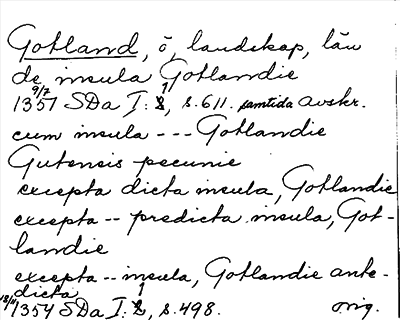 Gotland, ö, landskap, län
de insula Gotlandie
9/7 1357 SDa I:1, s.611. samtida avskr.
cum insula --- Gotlandie
Gutensis pecunie
excepta dicta insula, Gotlandie
excepta -- predicta insula, Got-
landie
excepta -- insula, Gotlandie ante-
dicta
1354 SDa I:1, s.498. orig.